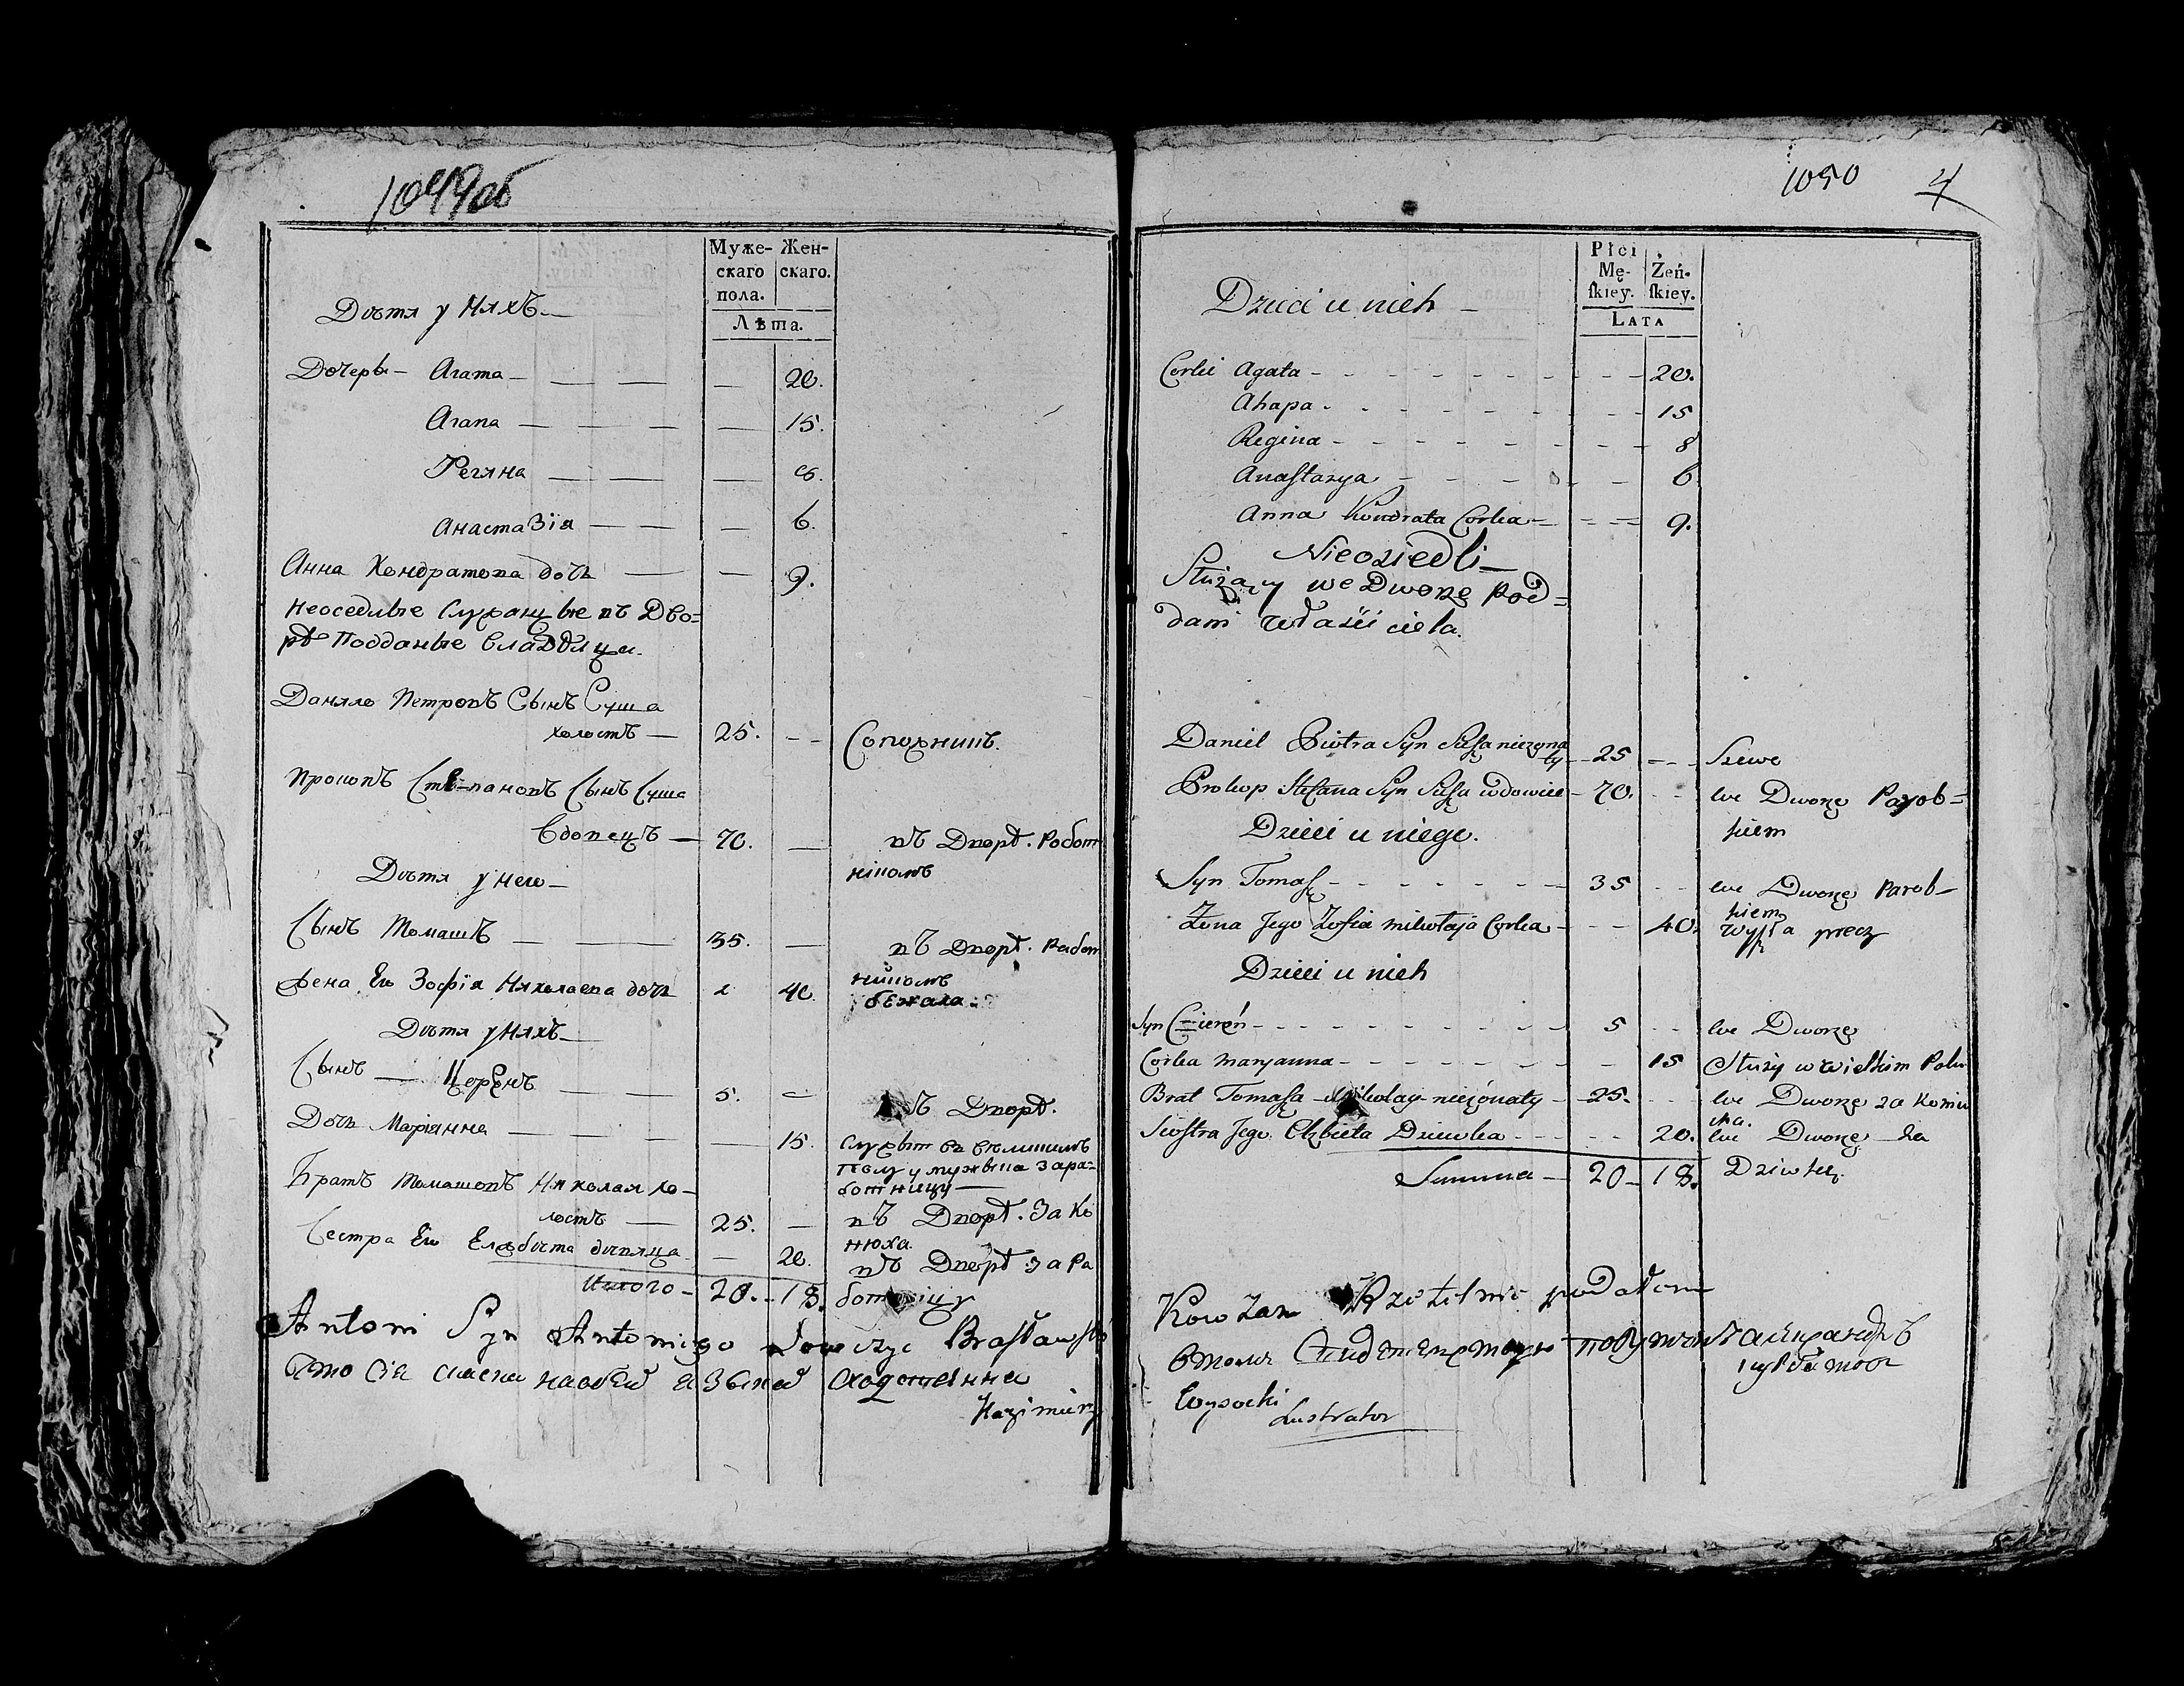 1049об
Муже- Жен-
скаго скаго.
пола.
Лѣта.
Дѣти у нихъ —
Дочеръ — Агата — 20.
Агапа — 15.
Регина — 8.
Анастазія — 6.
Анна Кондратова дочь — 9.
Неоседлые служащые въ Дво-
рѣ Подданые владѣлца.
Данило Петровъ Сынъ Суша
холостъ — 25. — Сапожникъ.
Прокопъ Стѣпановъ Сынъ Суша
вдовецъ — 70. — въ Дворѣ. Робот
нікомъ
Дѣти у него —
Сынъ Томашъ — 35. — въ Дворѣ. Работ
никомъ
Жена Его Зофія Николаева дочь 40. бежала
Дѣти у нихъ —
Сынъ — Церенъ — 5. — въ Дворѣ.
Дочь Маріянна — 15. служит въ
полу у мужыка за ра-
ботницу —
Братъ Томашовъ Николай хо-
лостъ — 25. — въ Дворѣ. За Ко
нюха.
Сестра Его Елжбѣта дѣвица — 20. въ Дворѣ за Ра
ботницу
Итого — 20. — 18.
Antoni Syn Antoniego Brasławski
что сія на обѣй
Kazimierz
1050 4
Płci
Mę- Żeń-
skiey. skiey.
LATA
Dzieci u nich —
Corki Agata — 20.
Ahapa — 15
Regina — 8
Anastazya — 6
Anna Kondrata Corka — 9.
Nieosiedli —
Służący we Dworze pod=
dani własciciela.
Daniel Piotra Syn Susza nieżona
ty — 25 — Szewc
Prokop Stefana Syn Susza wdowiec — 70. — we Dworze Parob=
kiem
Dzieci u niego.
Syn Tomasz — 35 — we Dworze Parob-
kiem
Żona Jego Zofia mikołaja Corka — 40. wyszła precz
Dzieci u nich
Syn — 5 — we Dworze
Corka maryanna — 15 Służy w wielkim Polu
Brat Tomasza Mikołay nieżonaty — 25. — we Dworze za koniu
cha.
Siostra Jego Elzbieta Dziewka — 20. we Dworze za
Dziwkę.
Summa — 20 — 18.
Rzetelnie podałem
Wysocki
Lustrator